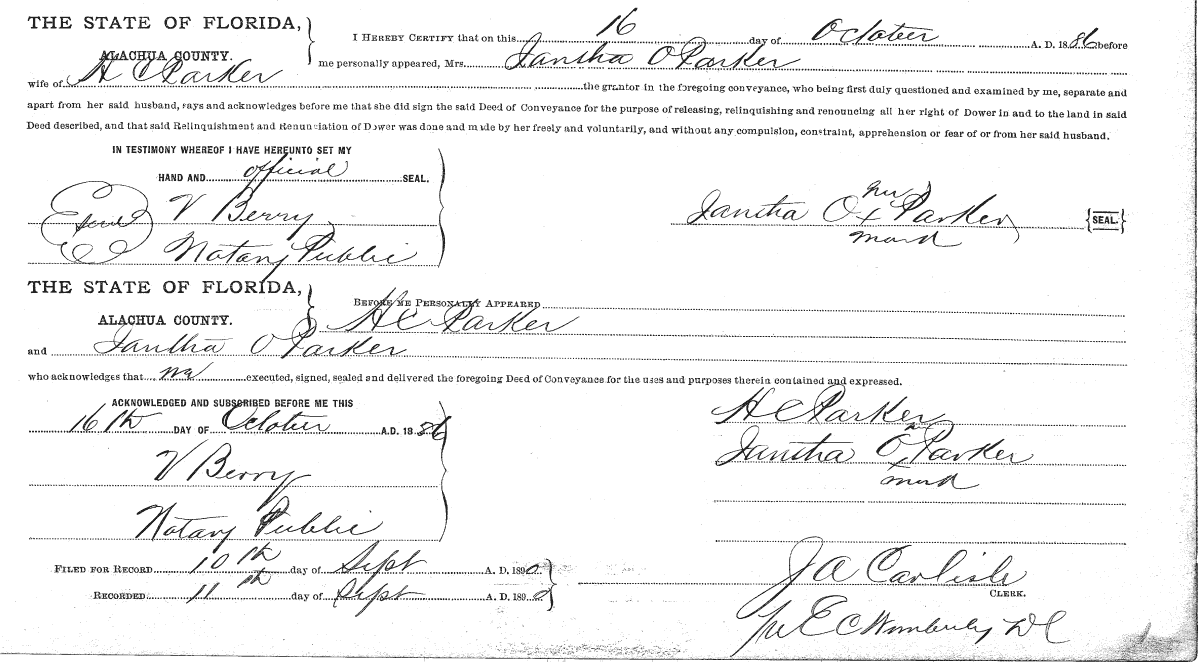 THE STATE OF FLORIDA,
ALACHUA COUNTY.
I HEREBY CERTIFY that on this 16 day of October A. D. 1886 before
me personally appeared, Mrs. Iantha O Parker
wife of H C Parker the grantor in the foregoing conveyance, who being first duly questioned and examined by me, separate and
apart from her said husband, says and acknowledges before me that she did sign the said Deed of Conveyance for the purpose of releasing, relinquishing and renouncing all her right of Dower in and to the land in said
Deed described, and that said Relinquishment and Renunciation of Dower was done and made by her freely and voluntarily, and without any compulsion, constraint, apprehension or fear of or from her said husband.
IN TESTIMONY WHEREOF I HAVE HEREUNTO SET MY
HAND AND official SEAL.
Seal V Berry
Notary Public
her
Iantha O x Parker {SEAL.}
mark
THE STATE OF FLORIDA,
ALACHUA COUNTY.
BEFORE ME PERSONALLY APPEARED
H C Parker
and Iantha O Parker
who acknowledges that executed, signed, sealed and delivered the foregoing Deed of Conveyance for the uses and purposes therein contained and expressed.
ACKNOWLEDGED AND SUBSCRIBED BEFORE ME THIS
16th DAY OF October A.D. 1886
V Berry
Notary Public
H C Parker
Iantha O x Parker
mark
FILED FOR RECORD 10th day of Sept A. D. 1890
RECORDED 11th day of Sept A. D. 1890
J A Carlisle
CLERK.
pr E C Wimberly DC